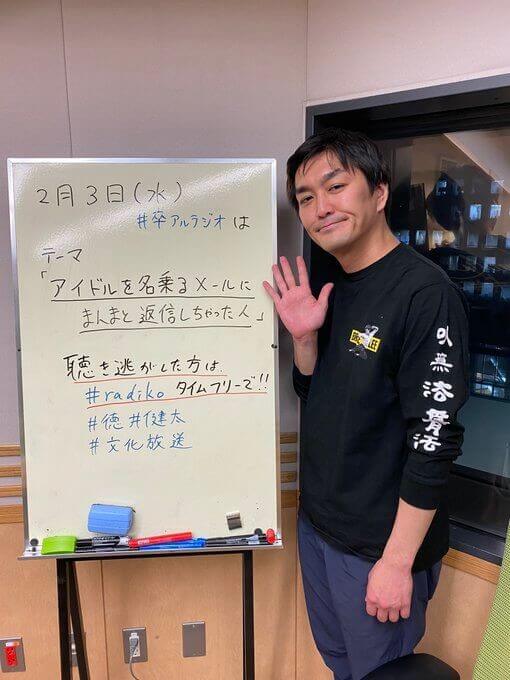 2月3日(水)
#卒アルラジオは
テーマ
「アイドルを名乗るメールに
まんまと返信しちゃった人」
聴き逃がした方は
#radiko タイムフリーで!!
#徳井健太
#文化放送